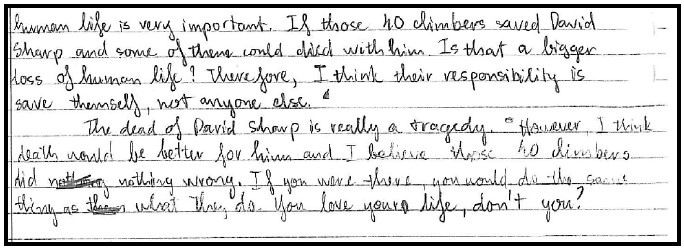 human life is very important. If those 40 climbers saved David
Sharp and some of them could died with him. Is that a bigger
loss of human life? Therefore, I think their responsibility is
save themself, not anyone else.
The dead of David Sharp is really a tragedy. However, I think
death would be better for him and I believe those 40 climbers
did nothing wrong. If you were there, you would do the same
thing as what they do. You love your life, don't you?